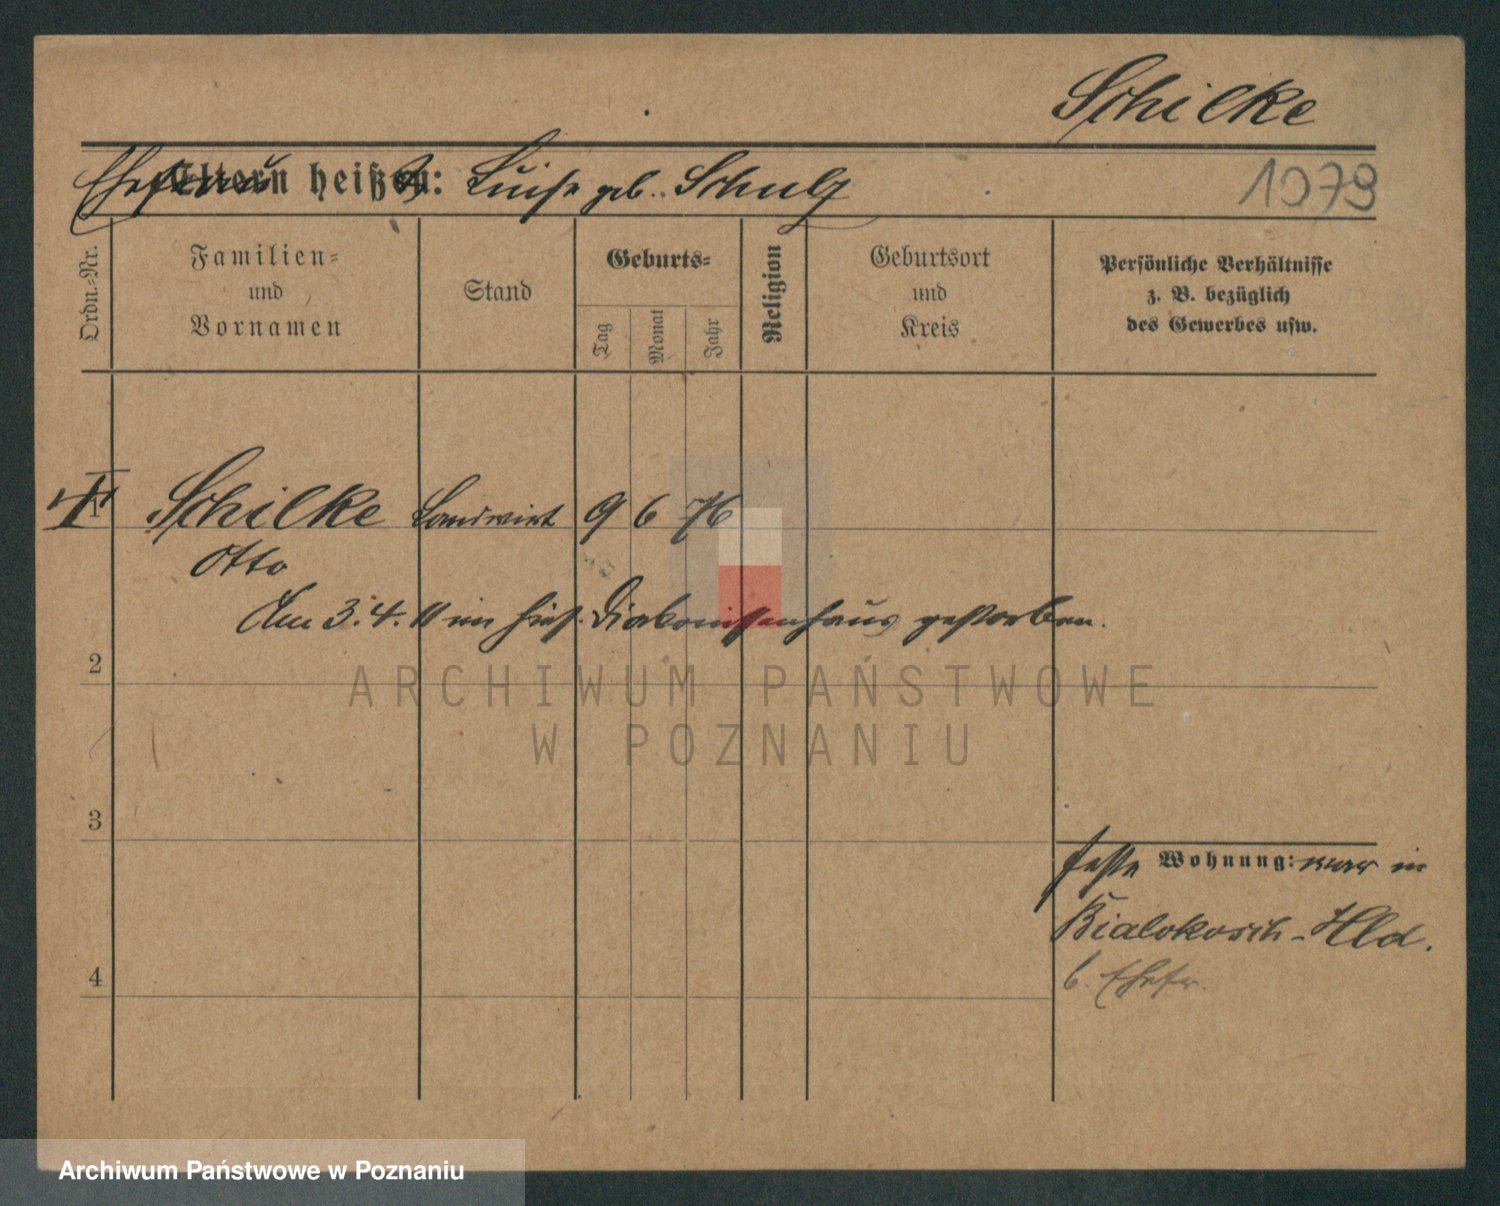 Schilke
Ehefrau heißt: Luise geb. Schulz
1079
Ordn.-Nr.
Familien-
und
Vornamen
Stand
Geburts-
Tag
Monat
Jahr
Religion
Geburtsort
und
Kreis
Persönliche Verhältnisse
z. B. bezüglich
des Gewerbes usw.
1 Schilke Landwirt 9 6 76
Otto
Am 3.4.11 im hies. Diakonissenhaus gestorben.
2
ARCHIWUM PAŃSTWOWE
W POZNANIU
3
feste Wohnung: war in
Bialokosch-Hld.
4
b. Ehefr.
Archiwum Państwowe w Poznaniu